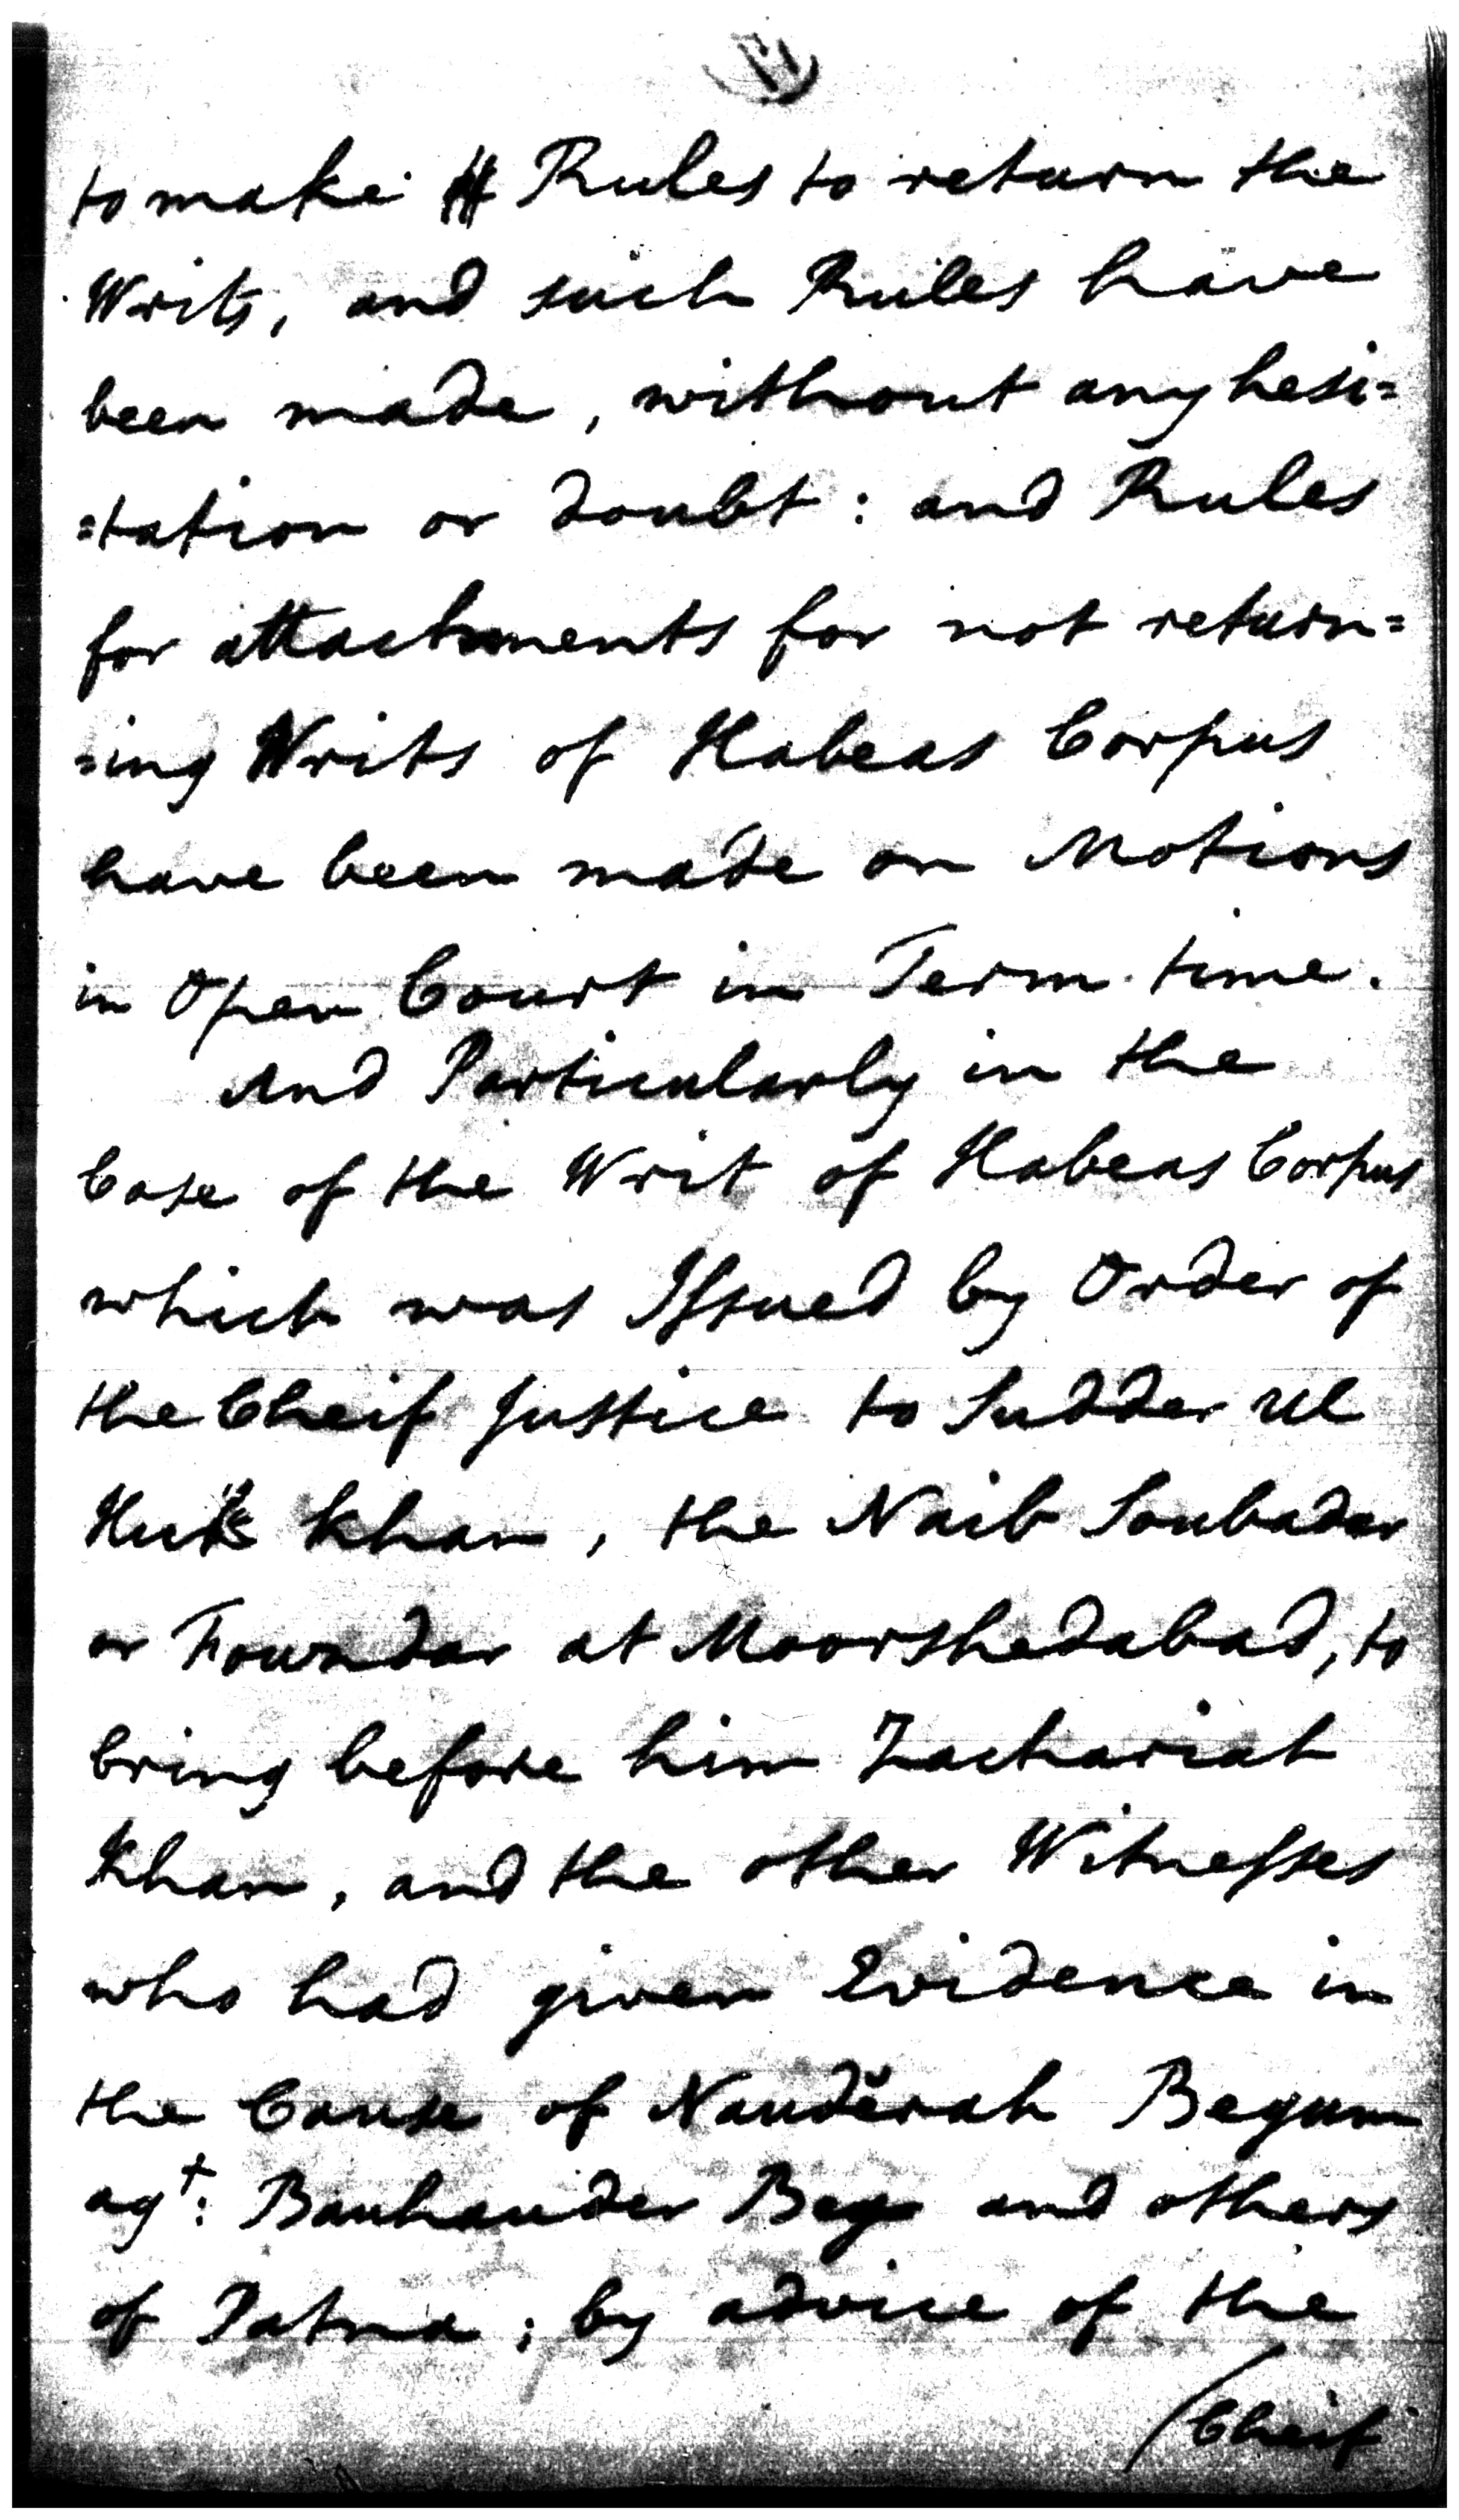 to make Rules to return the
Writs, and such Rules have
been made, without any hesi=
=tation or doubt: and Rules
for attachments for not return=
=ing Writs of Habeas Corpus
have been made on Motions
in Open Court in Term time.
And Particularly in the
Case of the Writ of Habeas Corpus
which was Issued by Order of
the Cheif Justice to Sudder ul
Huk Khan, the Naib Soubadar
or Fouzdar at Moorshedabad, to
bring before him Zachariah
Khan, and the other Witnesses
who had given Evidence in
the Cause of Naudĕrah Begum
agt: Bauhauder Beg and others
of Patna; by advice of the
/Cheif